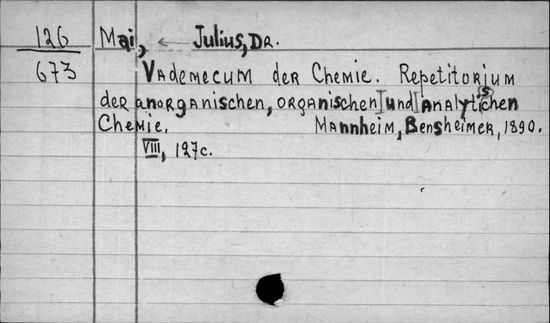 126 Mai, ← Julius, Dr.
673 Vademecum der Chemie. Repetitorium
der anorganischen, organischen und analytischen
Chemie. Mannheim, Bensheimer, 1890.
VIII, 127c.